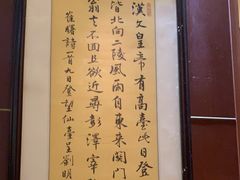 漢文皇帝有高臺此日登
皆北向二陵風雨自東来関门
翁去不回且欲近尋彭澤宰
崔曙詩一首九日登望仙臺呈劉明